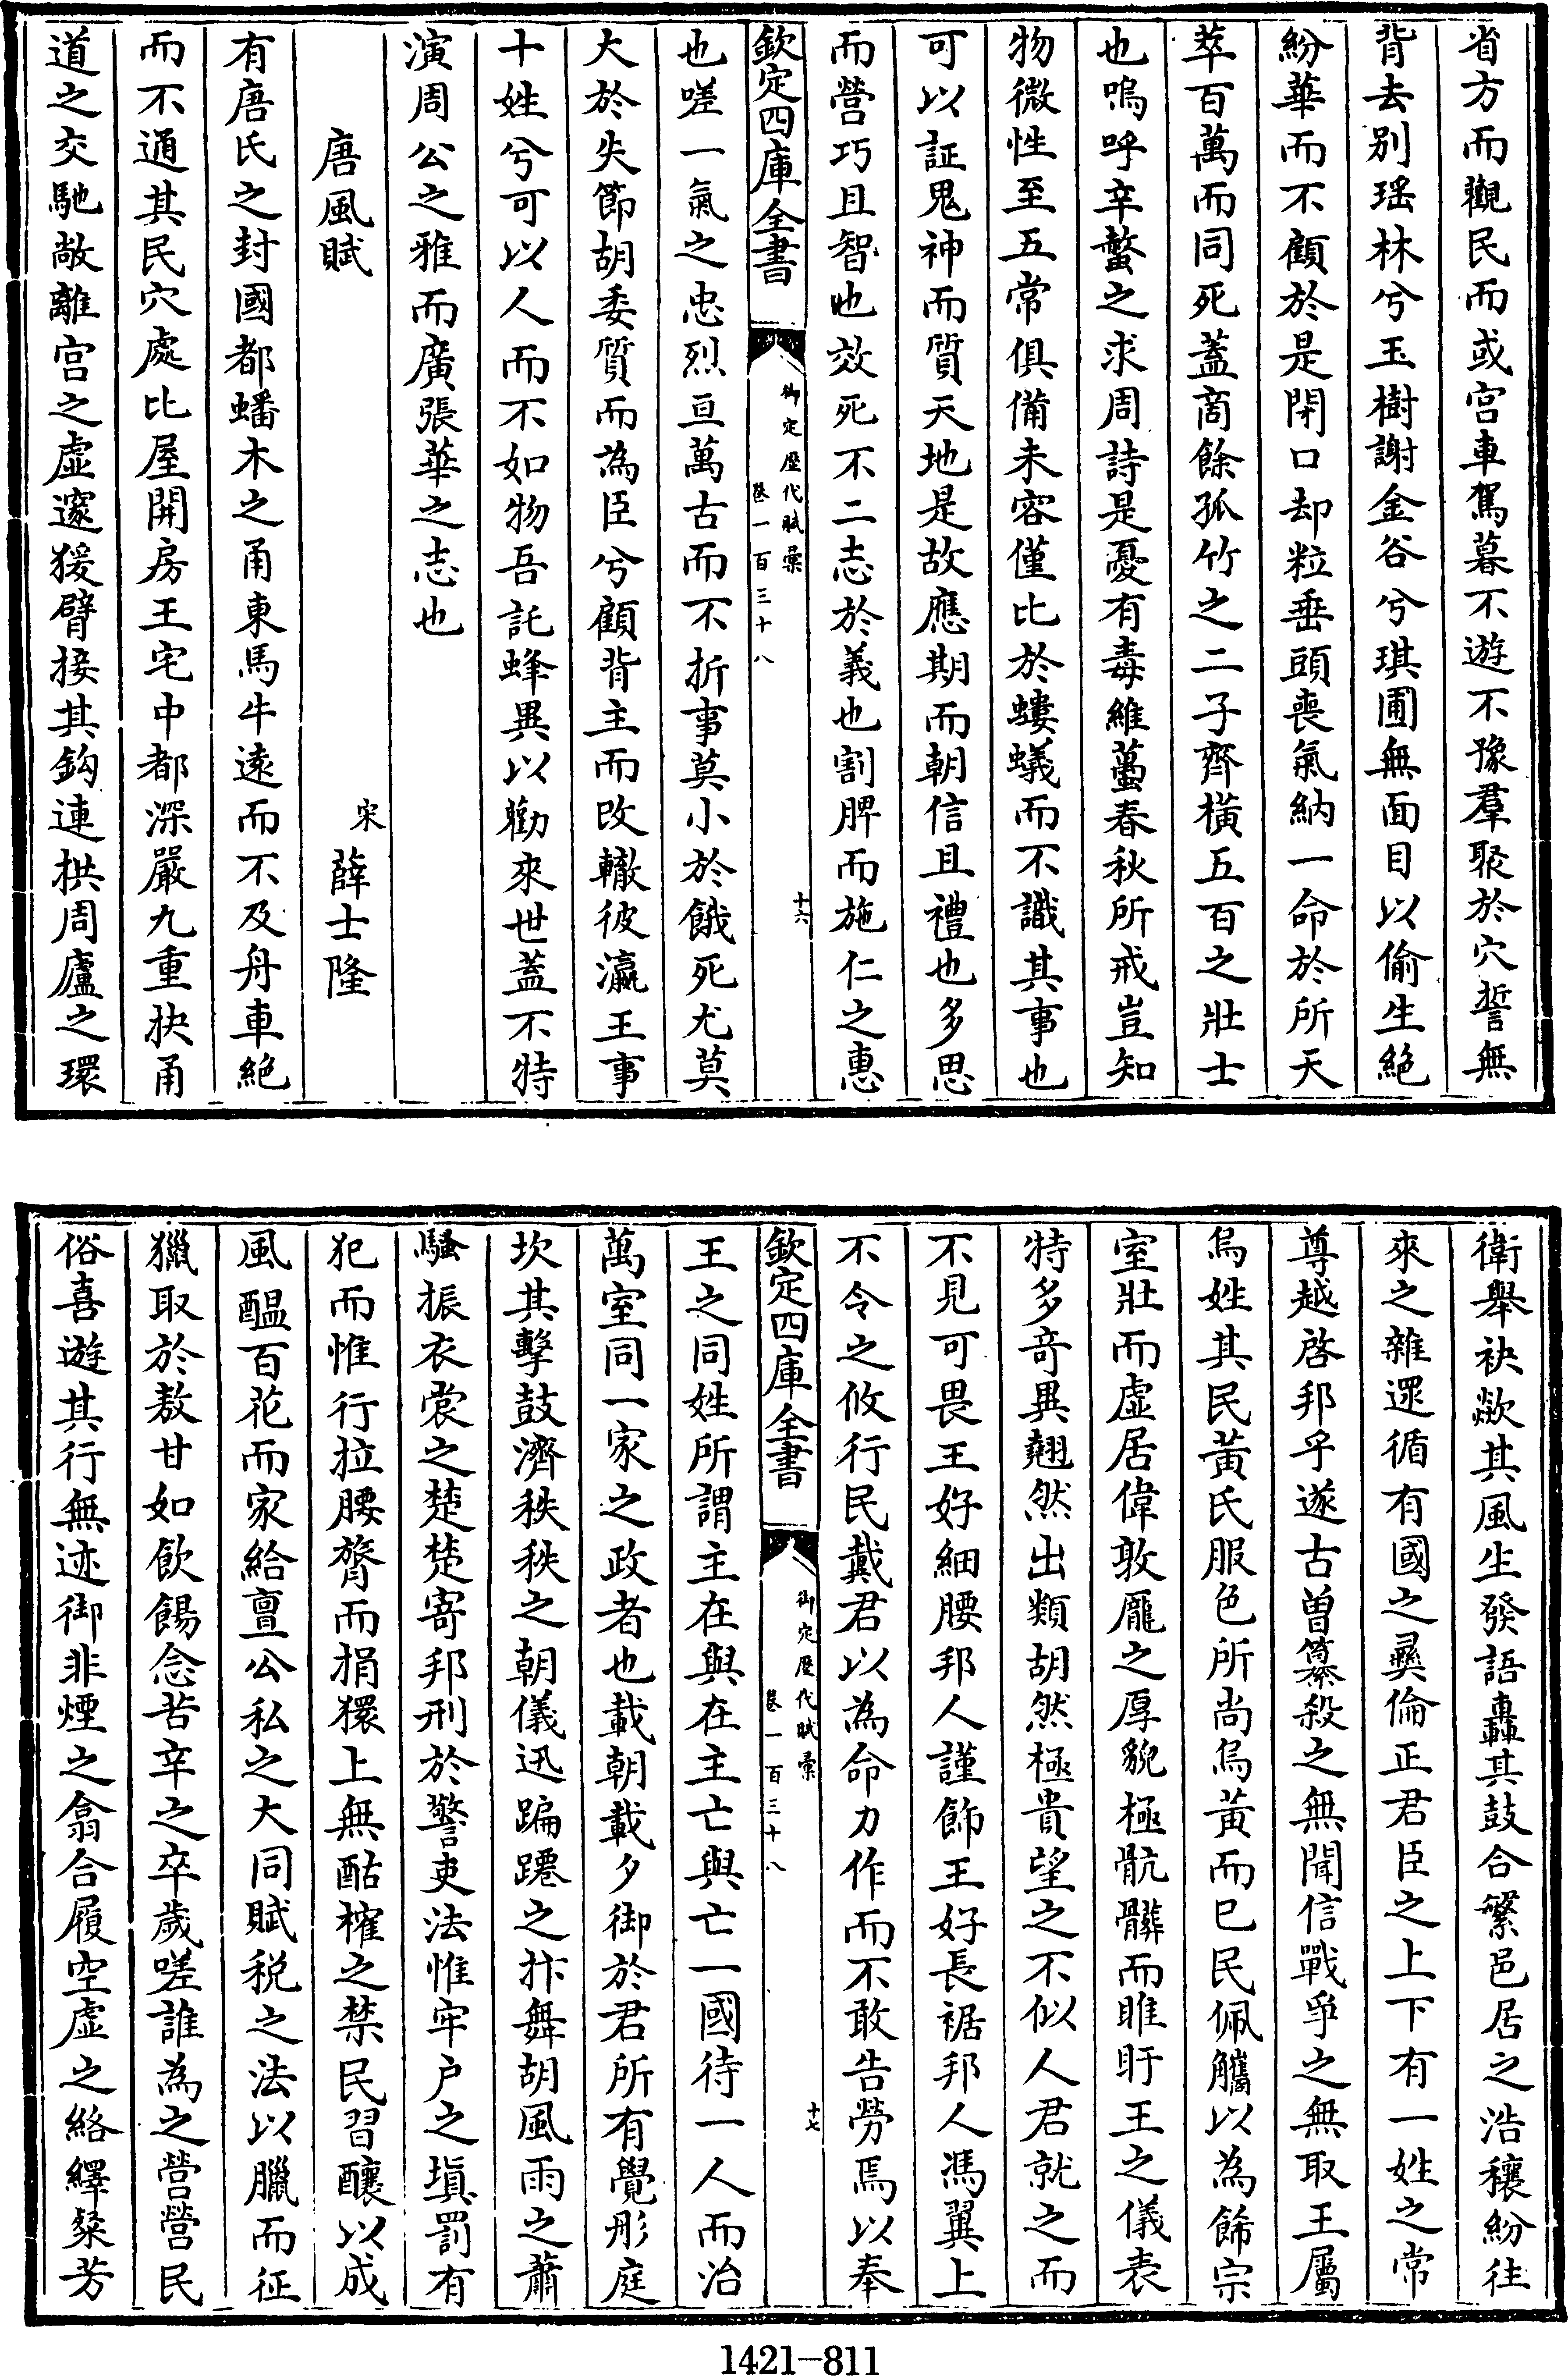 省方而觀民而或宫車駕暮不遊不豫羣聚於穴誓無
背去别瑶林兮玉樹謝金谷兮琪圃無面目以偷生絶
紛華而不顧於是閉口却粒垂頭喪氣納一命於所天
萃百萬而同死蓋商餘孤竹之二子齊橫五百之壯士
也嗚呼辛螫之求周詩是憂有毒維蠆春秋所戒豈知
物微性至五常俱備未容僅比於螻蟻而不識其事也
可以証鬼神而質天地是故應期而朝信且禮也多思
而營巧且智也效死不二志於義也割脾而施仁之惠
欽定四庫全書
御定歴代賦彙
卷一百三十八
十六
也嗟一氣之忠烈亘萬古而不折事莫小於餓死尤莫
大於失節胡委質而為臣兮顧背主而改轍彼瀛王事
十姓兮可以人而不如物吾託蜂異以勸來世蓋不特
演周公之雅而廣張華之志也
唐風賦
宋薛士隆
有唐氏之封國都蟠木之甬東馬牛遠而不及舟車絶
而不通其民穴處比屋開房王宅中都深嚴九重抉甬
道之交馳敞離宫之虚邃猨臂接其鈎連拱周廬之環
衛舉袂歘其風生發語轟其鼓合繁邑居之浩穰紛往
來之雜遝循有國之彛倫正君臣之上下有一姓之常
尊越啓邦乎遂古曽篡殺之無聞信戰爭之無取王屬
烏姓其民黃氏服色所尚烏黃而已民佩觿以為飾宗
室壯而虚居偉敦龐之厚貌極骯髒而睢盱王之儀表
特多竒異翹然出類胡然極貴望之不似人君就之而
不見可畏王好細腰邦人謹飾王好長裾邦人馮翼上
不令之攸行民戴君以為命力作而不敢告勞焉以奉
欽定四庫全書
御定歴代賦彙
卷一百三十八
十七
王之同姓所謂主在與在主亡與亡一國待一人而治
萬室同一家之政者也載朝載夕御於君所有覺彤庭
坎其擊鼓濟秩秩之朝儀迅蹁躚之抃舞胡風雨之蕭
騷振衣裳之楚楚寄邦刑於警吏法惟牢户之塡罰有
犯而惟行拉腰膂而捐獧上無酤榷之禁民習釀以成
風醖百花而家給亶公私之大同賦税之法以臘而征
獵取於敖甘如飲餳念苦辛之卒歲嗟誰為之營營民
俗喜遊其行無迹御非煙之翕合履空虚之絡繹粲芳
1421-811